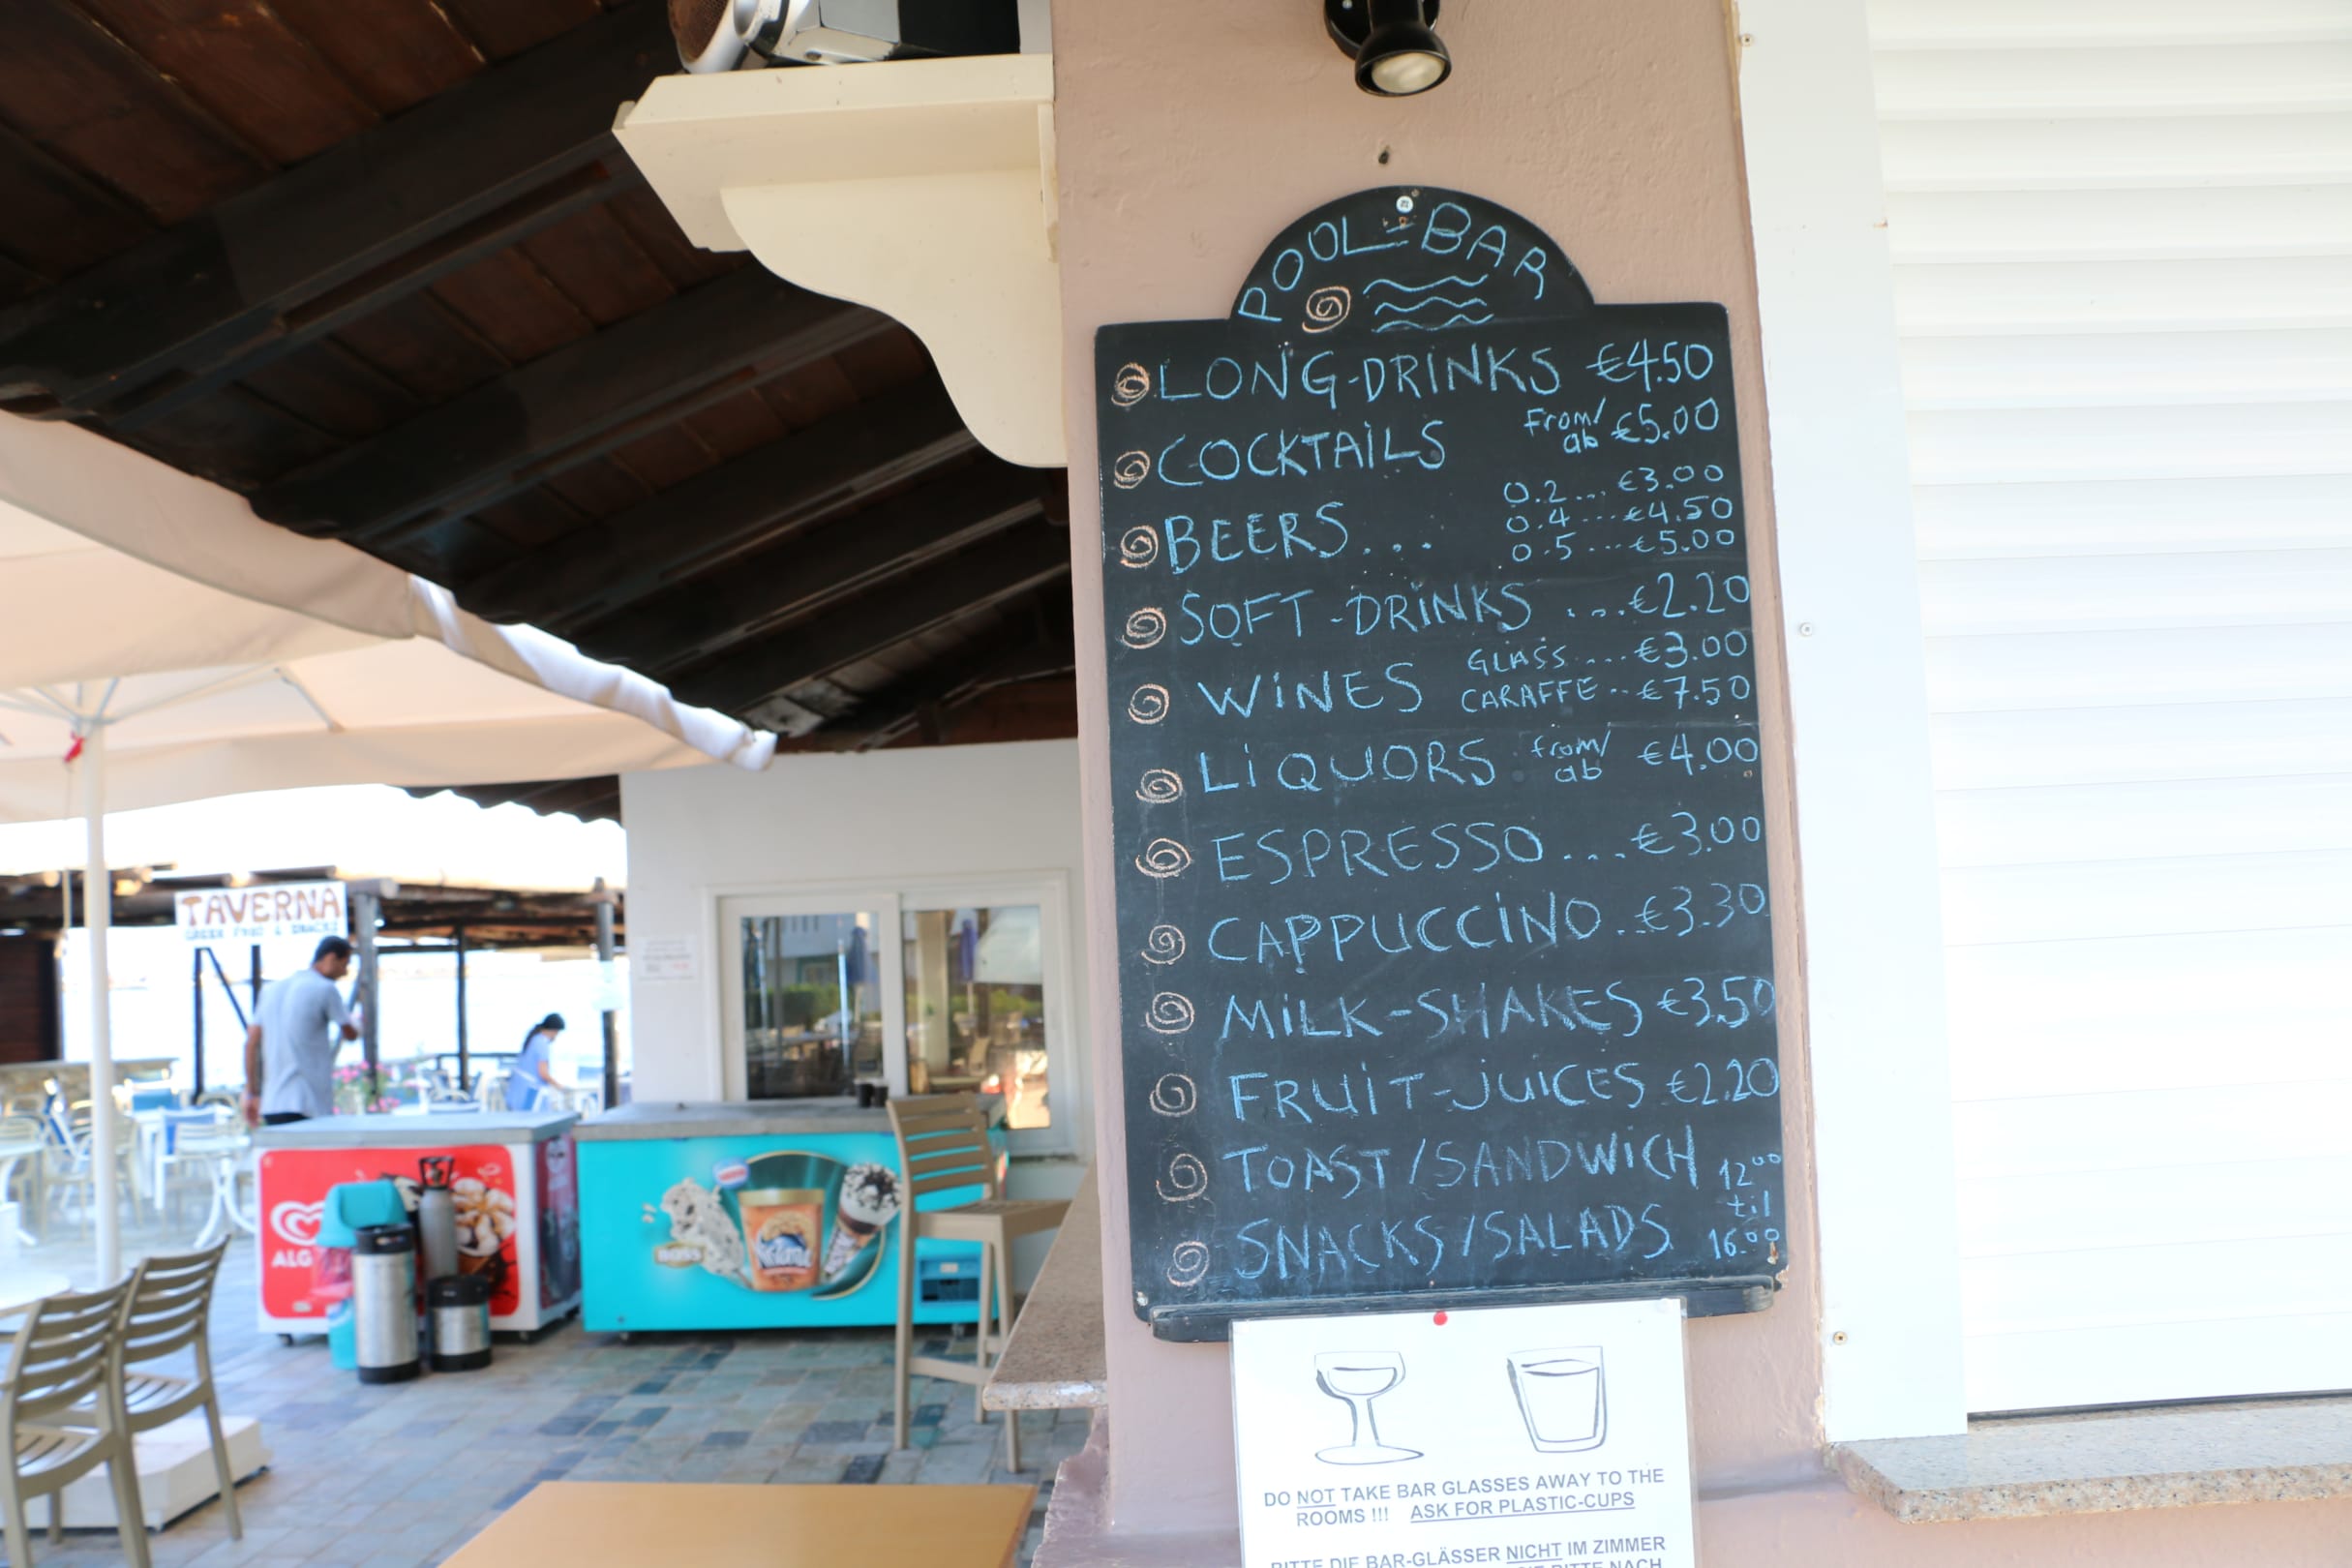 POOL-BAR
LONG-DRINKS €4.50
COCKTAILS From/ab €5.00
BEERS... 0.2... €3.00
0.4...€4.50
0.5...€5.00
SOFT-DRINKS ...€2.20
WINES GLASS....€3.00
CARAFFE..€7.50
LIQUORS from/ab €4.00
ESPRESSO...€3.00
CAPPUCCINO..€3.30
MILK-SHAKES €3.50
FRUIT-JUICES €2.20
TOAST/SANDWICH 12⁰⁰
til
SNACKS/SALADS 16.⁰⁰
DO NOT TAKE BAR GLASSES AWAY TO THE
ROOMS !!! ASK FOR PLASTIC-CUPS
BITTE DIE BAR-GLÄSSER NICHT IM ZIMMER
BITTE NACH
TAVERNA
ALG